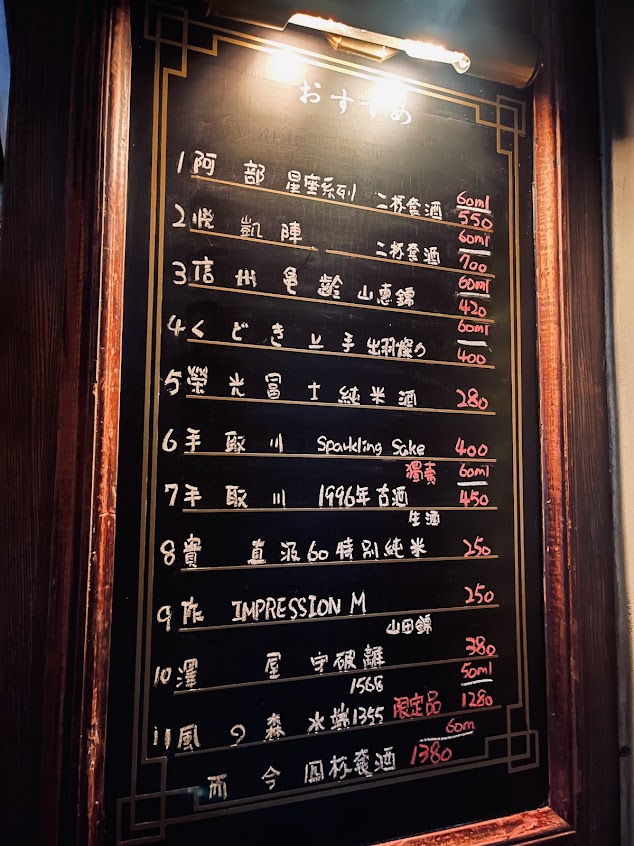 おすすめ
1 阿部 星座系列 二杯套酒 60ml 550
2 悦凱陣 二杯套酒 60ml 700
3 信州亀齢 山恵錦 60ml 420
4 くどき上手 出羽燦々 60ml 400
5 榮光冨士 純米酒 280
6 手取川 Sparkling Sake 400
7 手取川 1996年古酒 獨賣 60ml 450
生酒
8 寶 直汲60特別純米 250
9 作 IMPRESSION M 250
山田錦
10 澤屋 守破離 380
1568 50ml
11 風の森 水端1355 限定品 1280
60m
而今 鳳杯套酒 1380